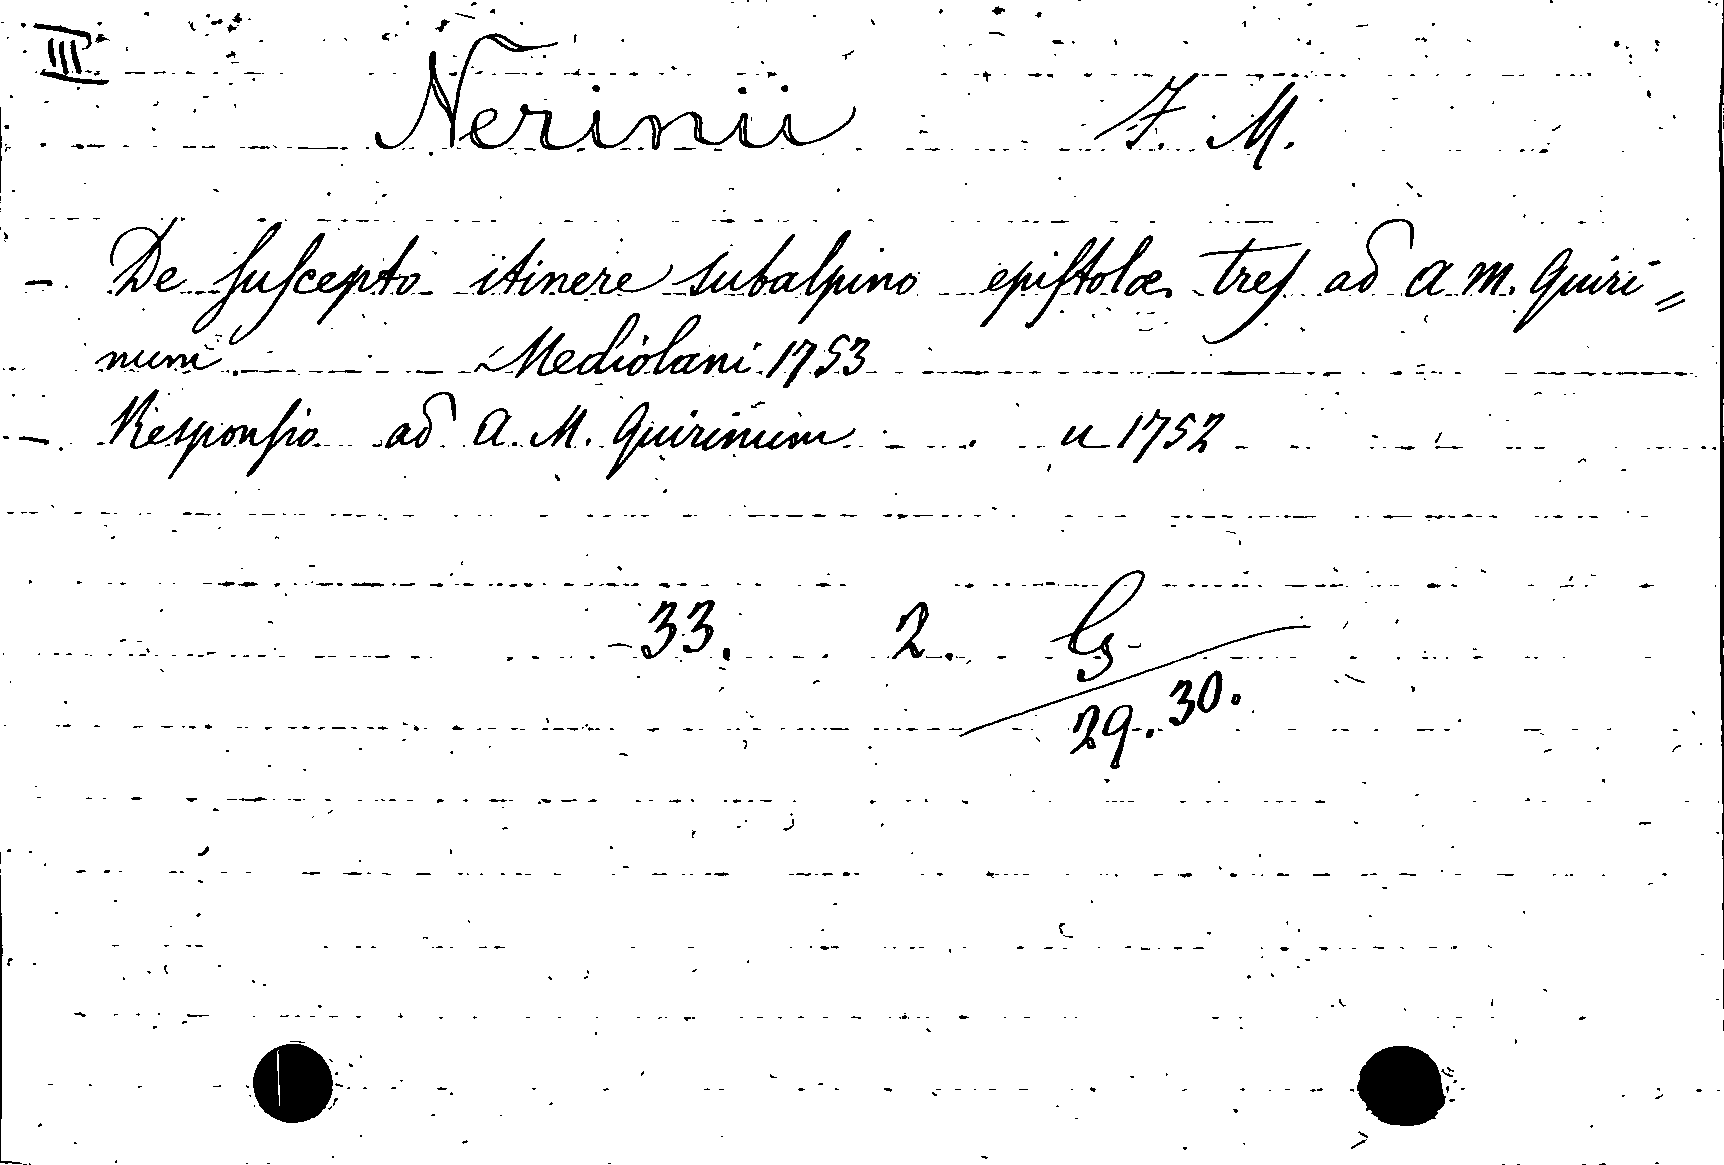 III
Nerinii F. M.
- De suscepto itinere subalpino epistolæ tres ad A. M. Quiri=
num Mediolani 1753
- Responsio ad A. M. Quirinum " 1752
33. 2. G
29. 30.